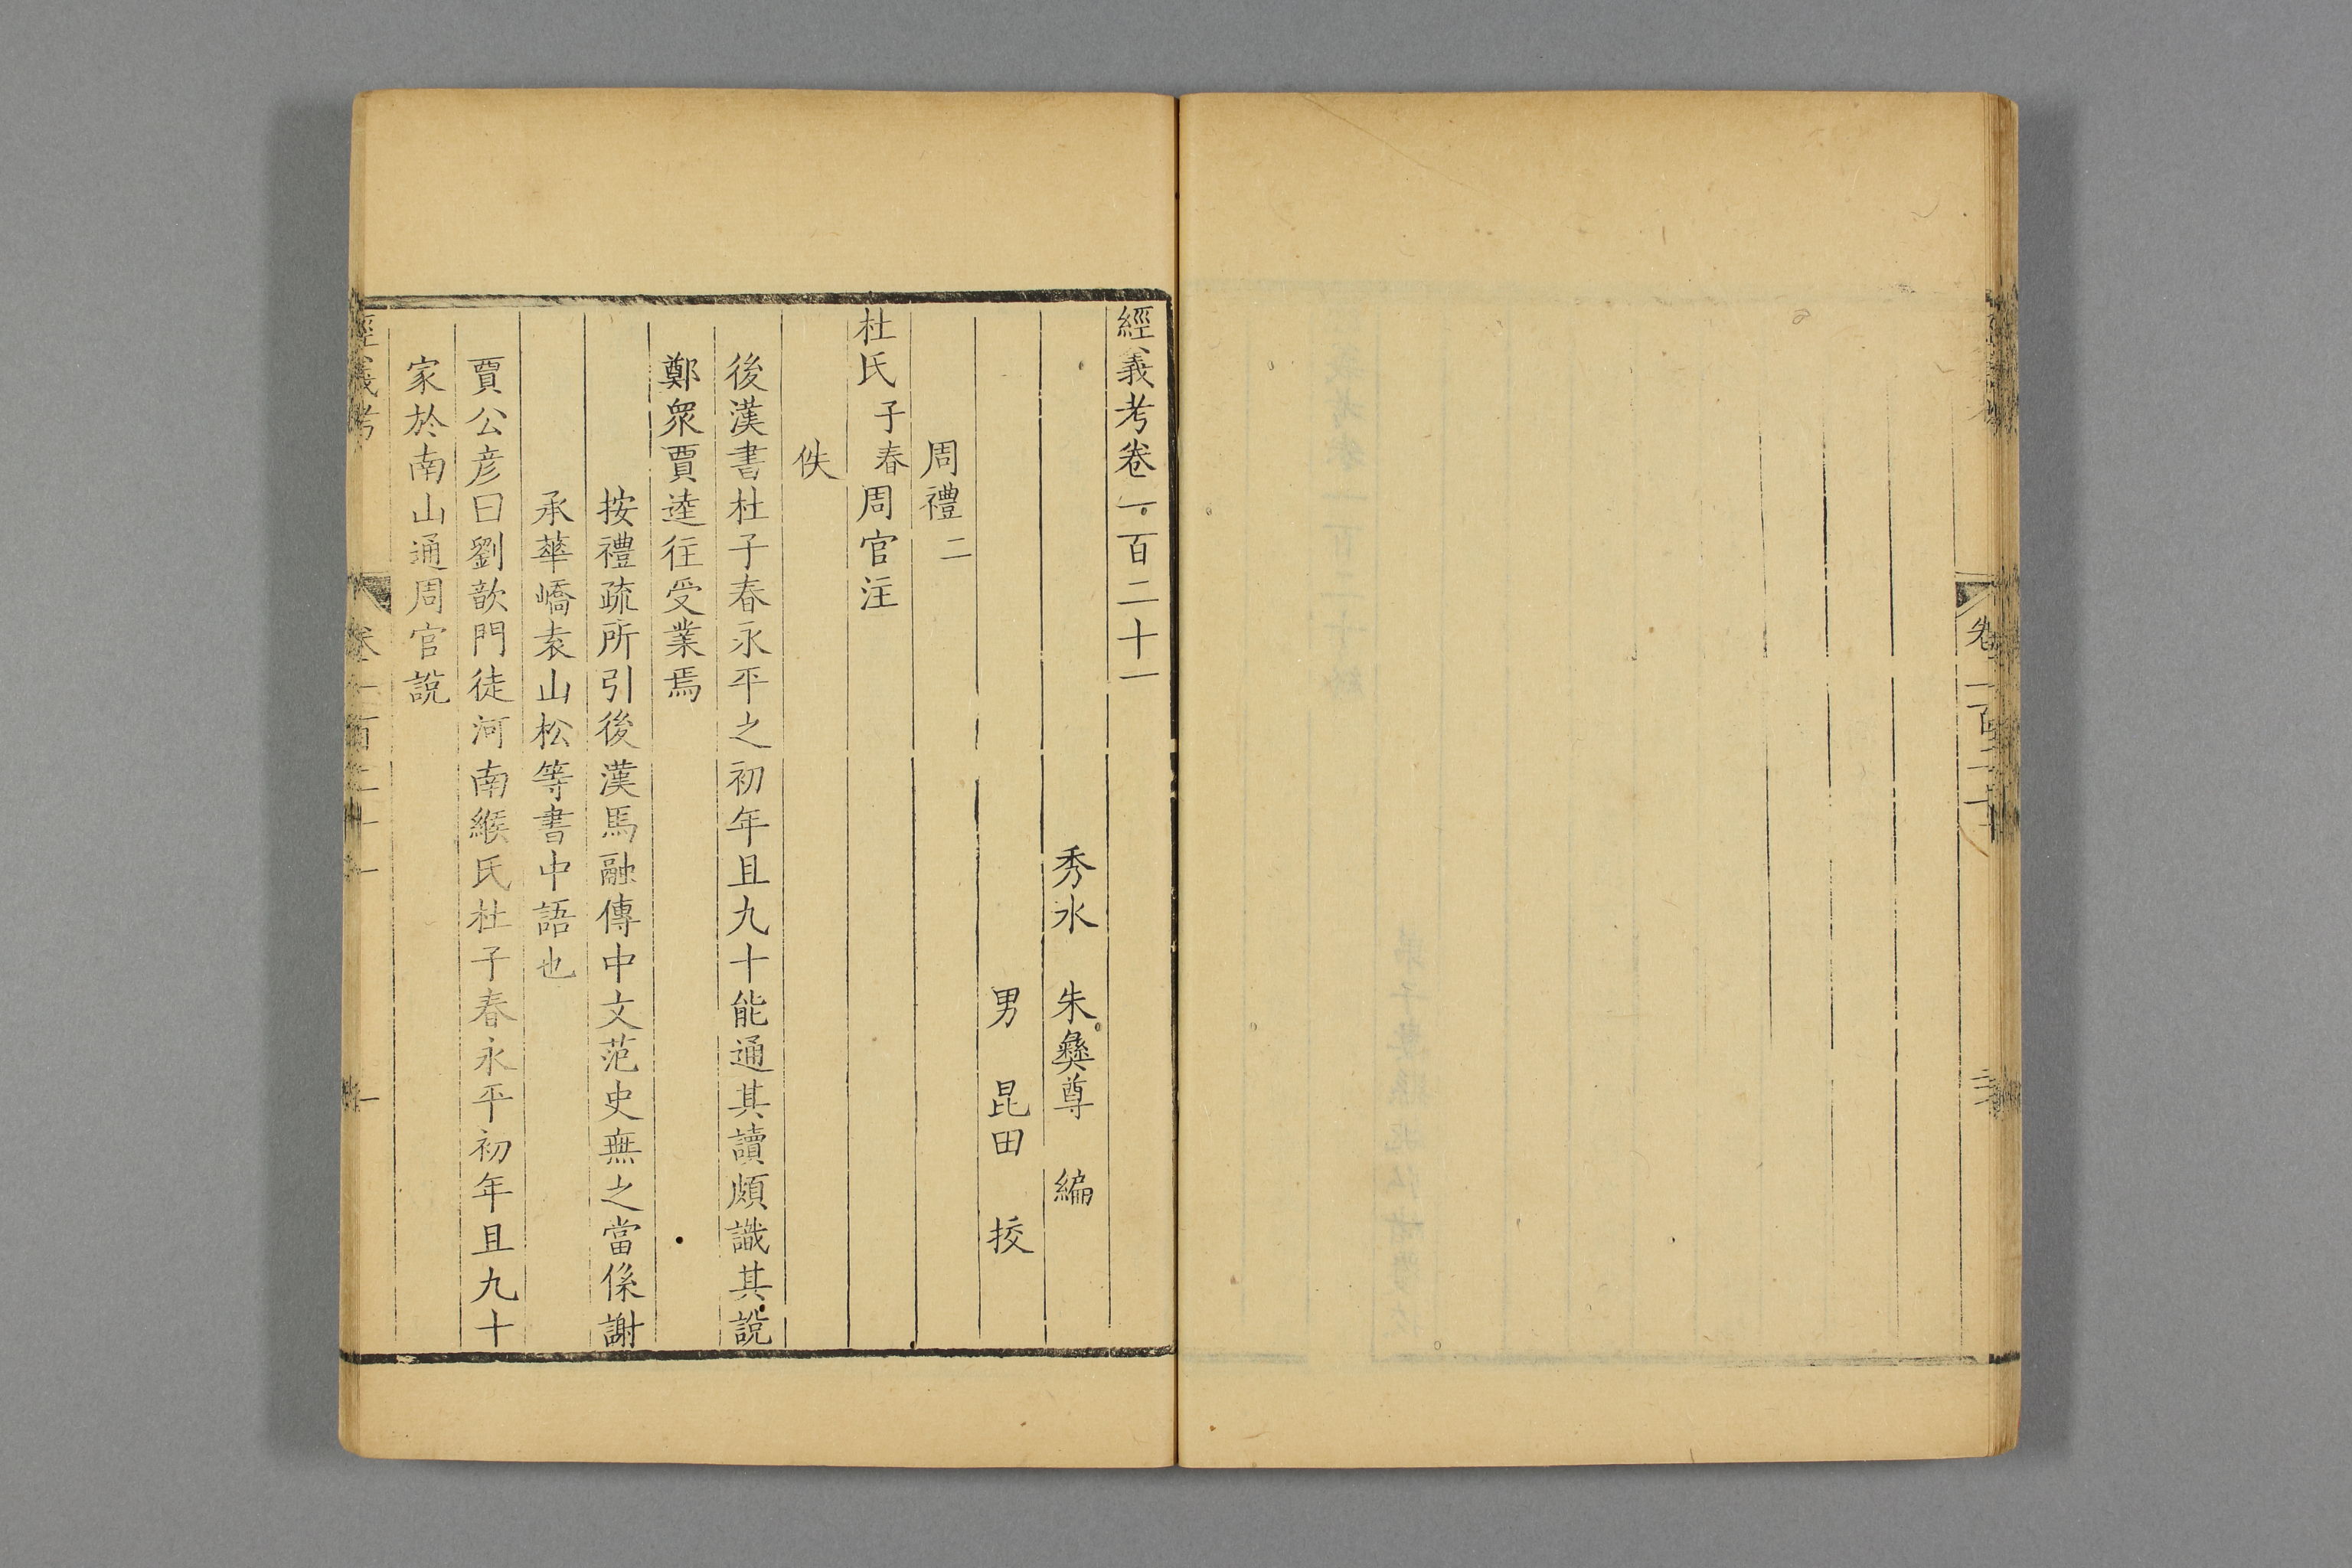 卷一百二十
經義考卷一百二十一
秀水 朱彝尊 編
男 昆田 挍
周禮二
杜氏子春周官注
佚
後漢書杜子春永平之初年且九十能通其讀頗識其說
鄭衆賈逵往受業焉
按禮疏所引後漢馬融傳中文范史無之當係謝
承華嶠袁山松等書中語也
賈公彦曰劉歆門徒河南緱氏杜子春永平初年且九十
家於南山通周官說
經義考 卷一百二十一 一